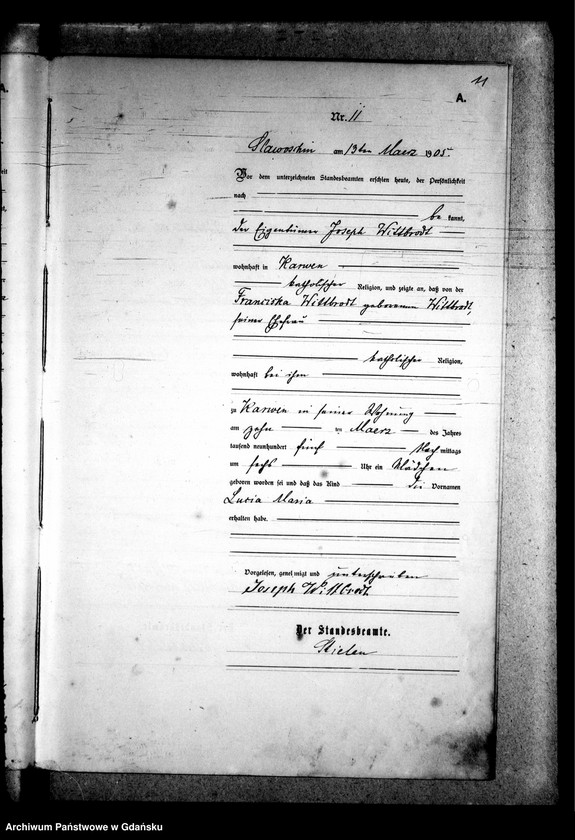 11
A.
Nr. 11
Slawoschin am 13ten Maerz 1905.
Vor dem unterzeichneten Standesbeamten erschien heute, der Persönlichkeit
nach
be kannt,
der Eigentümer Joseph Wittbrodt
wohnhaft in Karwen
katholischer Religion, und zeigte an, daß von der
Franciska Wittbrodt geborenen Wittbrodt,
seiner Ehefrau
katholischer Religion,
wohnhaft bei ihm
zu Karwen in seiner Wohnung
am zehn ten Maerz des Jahres
tausend neunhundert fünf Nach mittags
um sechs Uhr ein Mädchen
geboren worden sei und daß das Kind die Vornamen
Lucia Maria
erhalten habe.
Vorgelesen, genehmigt und unterschrieben
Joseph Wittbrodt
Der Standesbeamte.
Archiwum Państwowe w Gdańsku